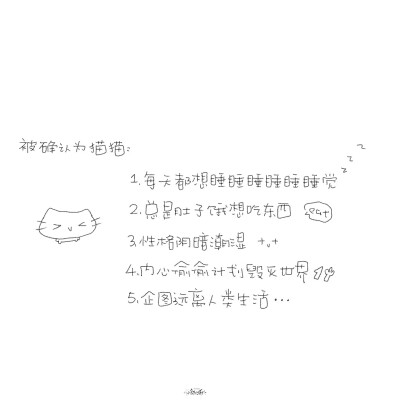 被确认为猫猫:
1.每天都想睡睡睡睡睡睡觉 zzz
2.总是肚子饿想吃东西 eat
3.性格阴暗潮湿
4.内心偷偷计划毁灭世界
5.企图远离人类生活...